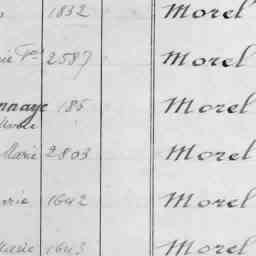 1832 Morel
2587 Morel
nnaye 185 Morel
Marie 2803 Morel
1642 Morel
Marie 1643 Morel